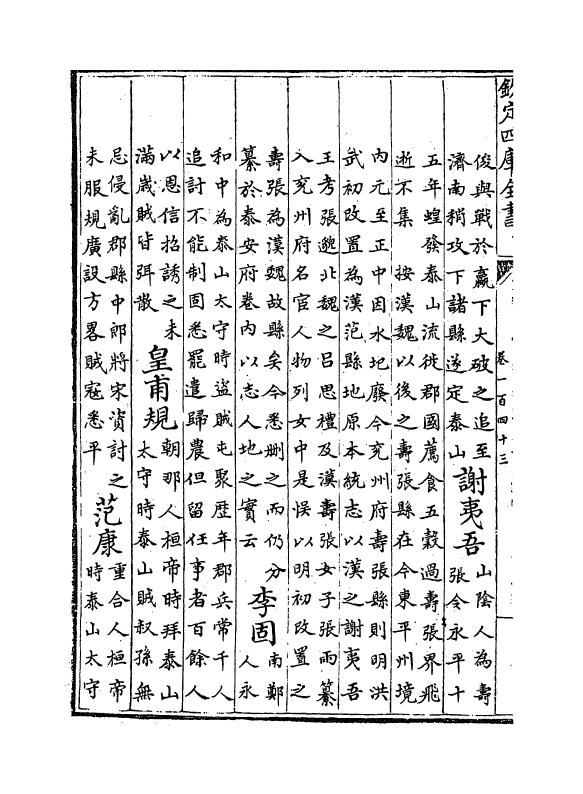 欽定四庫全書
卷一百四十三
俊與戰於嬴下大破之追至
濟南稍攻下諸縣遂定泰山
謝夷吾
山陰人為壽
張令永平十
五年蝗發泰山流徙郡國薦食五穀過壽張界飛
逝不集　按漢魏以後之壽張縣在今東平州境
內元至正中因水圮廢今兖州府壽張縣則明洪
武初改置為漢范縣地原本統志以漢之謝夷吾
王考張邈北魏之吕思禮及漢壽張女子張雨纂
入兖州府名宦人物列女中是悞以明初改置之
壽張為漢魏故縣矣今悉刪之而仍分
纂於泰安府卷內以志人地之實云
李固
南鄭
人永
和中為泰山太守時盜賊屯聚歴年郡兵常千人
追討不能制固悉罷遣歸農但留任事者百餘人
以恩信招誘之未
滿歲賊皆弭散
皇甫規
朝那人桓帝時拜泰山
太守時泰山賊叔孫無
忌侵亂郡縣中郎將宋資討之
未服規廣設方畧賊寇悉平
范康
重合人桓帝
時泰山太守